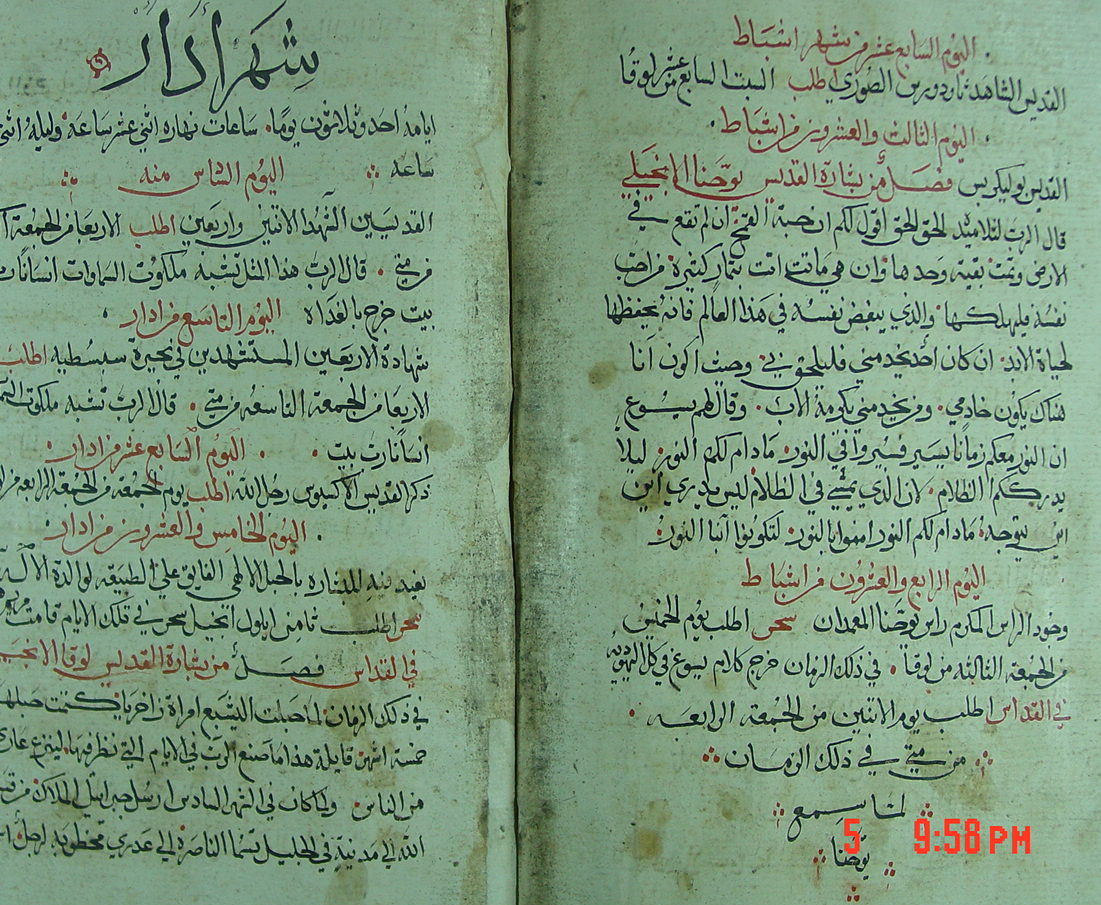 اليوم السابع عشر من شهر اشباط
القديس الشاهد ثاودورس الصوري اطلب السبت السابع عشر لوقا
اليوم الثالث والعشرون من اشباط
القديس بوليكربس فصل من بشارة القديس يوحنا الانجيلي
قال الرب لتلاميذه الحق الحق اقول لكم ان حبة القمح ان لم تقع في
الارض وتمت بقيت وحدها وان هي ماتت اتت بثمار كثيرة من احب
نفسه فليهلكها والذي يبغض نفسه في هذا العالم فانه يحفظها
لحياة الابد ان كان أحد يخدمني فليلحق بي وحيث اكون انا
هناك يكون خادمي ومن يخدمني يكرمه الاب وقال لهم يسوع
ان النور معكم زمانا يسير فسيروا في النور مادام لكم النور ليلا
يدرككم الظلام لان الذي يمشي في الظلام ليس يدري اين
يتوجه مادام لكم النور امنوا بالنور لتكونوا ابنا النور
اليوم الرابع والعشرون من اشباط
وجود الراس المكرم راس يوحنا المعمدان سحر اطلب يوم الخميس
من الجمعة الثالثة من لوقا في ذلك الزمان خرج كلام يسوع في كل اليهودية
في القداس اطلب يوم الاثنين من الجمعة الرابعه
من متي في ذلك الزمان
لما سمع
يوحنا
5 9:58 PM
شهر ادار
ايامه أحد وثلاثون يوما ساعات نهاره اثني عشر ساعة وليله اثني
ساعه
اليوم السادس منه
القديسين الشهدا الاثنين واربعين اطلب الاربعا من الجمعة
من متي قال الرب هذا المثل تشبه ملكوت السماوات انسانا رب
بيت خرج بالغداه اليوم التاسع من ادار
شهادة الاربعين المستشهدين في بحيرة سبسطيه اطلب
الاربعا من الجمعة التاسعه من متي قال الرب تشبه ملكوت
انسانا رب بيت اليوم السابع عشر من ادار
ذكر القديس الاكسيوس رجل الله اطلب يوم الجمعة من الجمعة الرابعه من
اليوم الخامس والعشرون من ادار
بعيد فيه للبشاره بالحبل الالهي الفايق علي الطبيعه لوالدة الاله
سحر اطلب ثامن ايلول انجيل سحر في تلك الايام قامت مريم
في القداس فصل من بشارة القديس لوقا الانجيلي
في ذلك الزمان لما حبلت اليشبع امراة زاخريا كتمت حبلها
خمسة اشهر قايلة هذا ما صنع الرب في الايام التي نظر فيها لينزع عاري
من الناس ولما كان في الشهر السادس ارسل جبراييل الملاك من قبل
الله الي مدينة في الجليل تسما الناصرة الي عدري مخطوبه لرجل